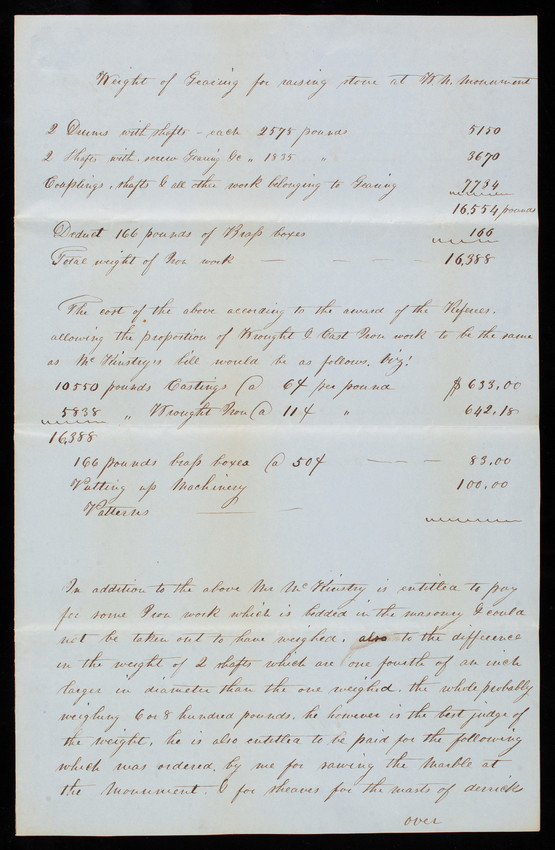 Weight of Gearing for raising stone at W. N. Monument
2 Drums with shafts - each 2575 pounds 5150
2 Shafts with screw Gearing &c " 1835 " 3670
Couplings, shafts & all other work belonging to Gearing 7734
16,554 pounds
Deduct 166 pounds of Brass boxes 166
Total weight of Iron work — — — — 16,388
The cost of the above according to the award of the Referees.
allowing the proportion of Wrought & Cast Iron work to be the same
as Mc Kinstry's bill would be as follows, viz!
10550 pounds Castings @ 6¢ per pound $633,00
5838 " Wrought Iron @ 11¢ " 642,18
16,388
166 pounds brass boxes @ 50¢ — — — 83,00
Putting up Machinery 100,00
Patterns — —
In addition to the above Mr Mc Kinstry is entitled to pay
for some Iron work which is bedded in the masonry & could
not be taken out to have weighed, also to the difference
in the weight of 2 shafts which are one fourth of an inch
larger in diameter than the one weighed. the whole probably
weighing 6 or 8 hundred pounds. he however is the best judge of
the weight, he is also entitled to be paid for the following
which was ordered, by me for sawing the Marble at
the Monument. & for sheaves for the masts of derrick
over